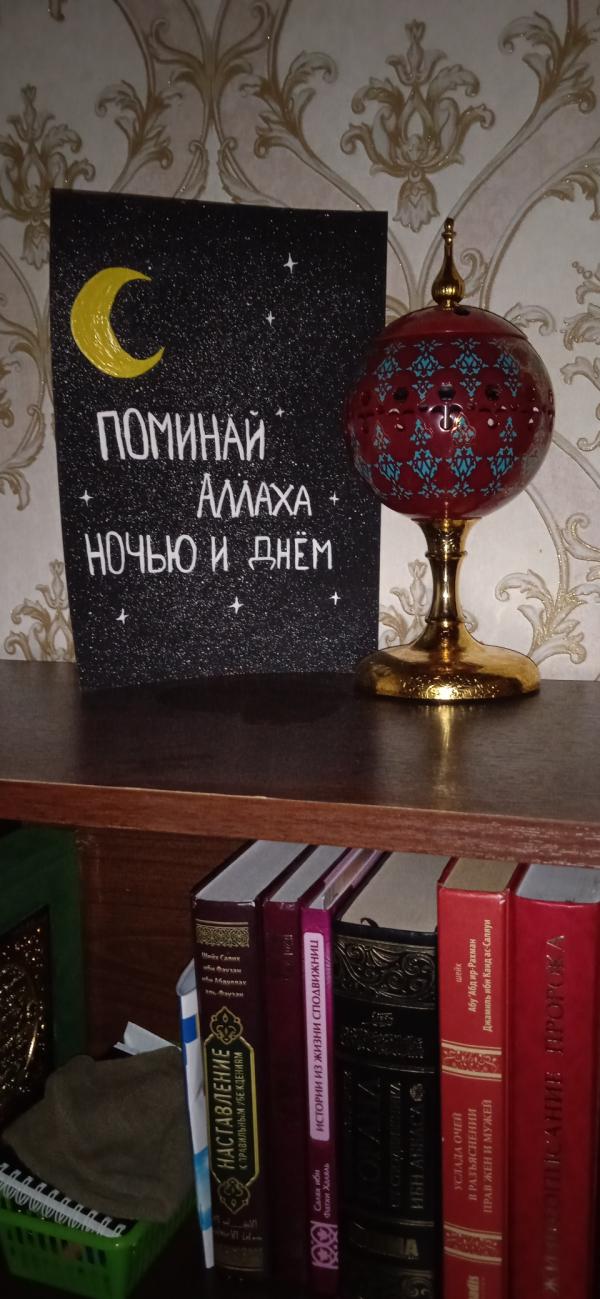 ПОМИНАЙ
АЛЛАХА
НОЧЬЮ И ДНЁМ
Шейх Салих
ибн Фаузан
ибн Абдуллах
аль-Фаузан
НАСТАВЛЕНИЕ
К ПРАВИЛЬНЫМ УБЕЖДЕНИЯМ
ИСТОРИИ ИЗ ЖИЗНИ СПОДВИЖНИЦ
Салах ибн
Фатхи Халяль
КОРАНА
ИБН АББАСА
ШЕЙХ
Абу 'Абд ир-Рахман
Джамиль ибн Каид ас-Саляуи
УСЛАДА ОЧЕЙ
В РАЗЪЯСНЕНИИ
ПРАВ ЖЕН И МУЖЕЙ
ЖИЗНЕОПИСАНИЕ ПРОРОКА